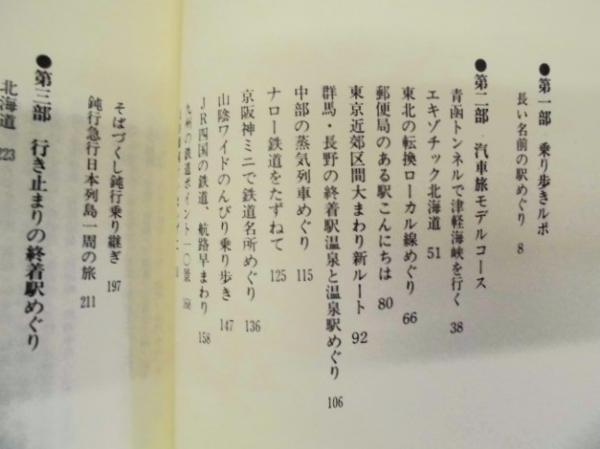 ●第一部　乗り歩きルポ
長い名前の駅めぐり 8
●第二部　汽車旅モデルコース
青函トンネルで津軽海峡を行く 38
エキゾチック北海道 51
東北の転換ローカル線めぐり 66
郵便局のある駅こんにちは 80
東京近郊区間大まわり新ルート 92
群馬・長野の終着駅温泉と温泉駅めぐり 106
中部の蒸気列車めぐり 115
ナロー鉄道をたずねて 125
京阪神ミニで鉄道名所めぐり 136
山陰ワイドのんびり乗り歩き 147
JR四国の鉄道、航路早まわり 158
九州の鉄道ポイント一〇景
そばづくし鈍行乗り継ぎ 197
鈍行急行日本列島一周の旅 211
●第三部　行き止まりの終着駅めぐり
北海道 223